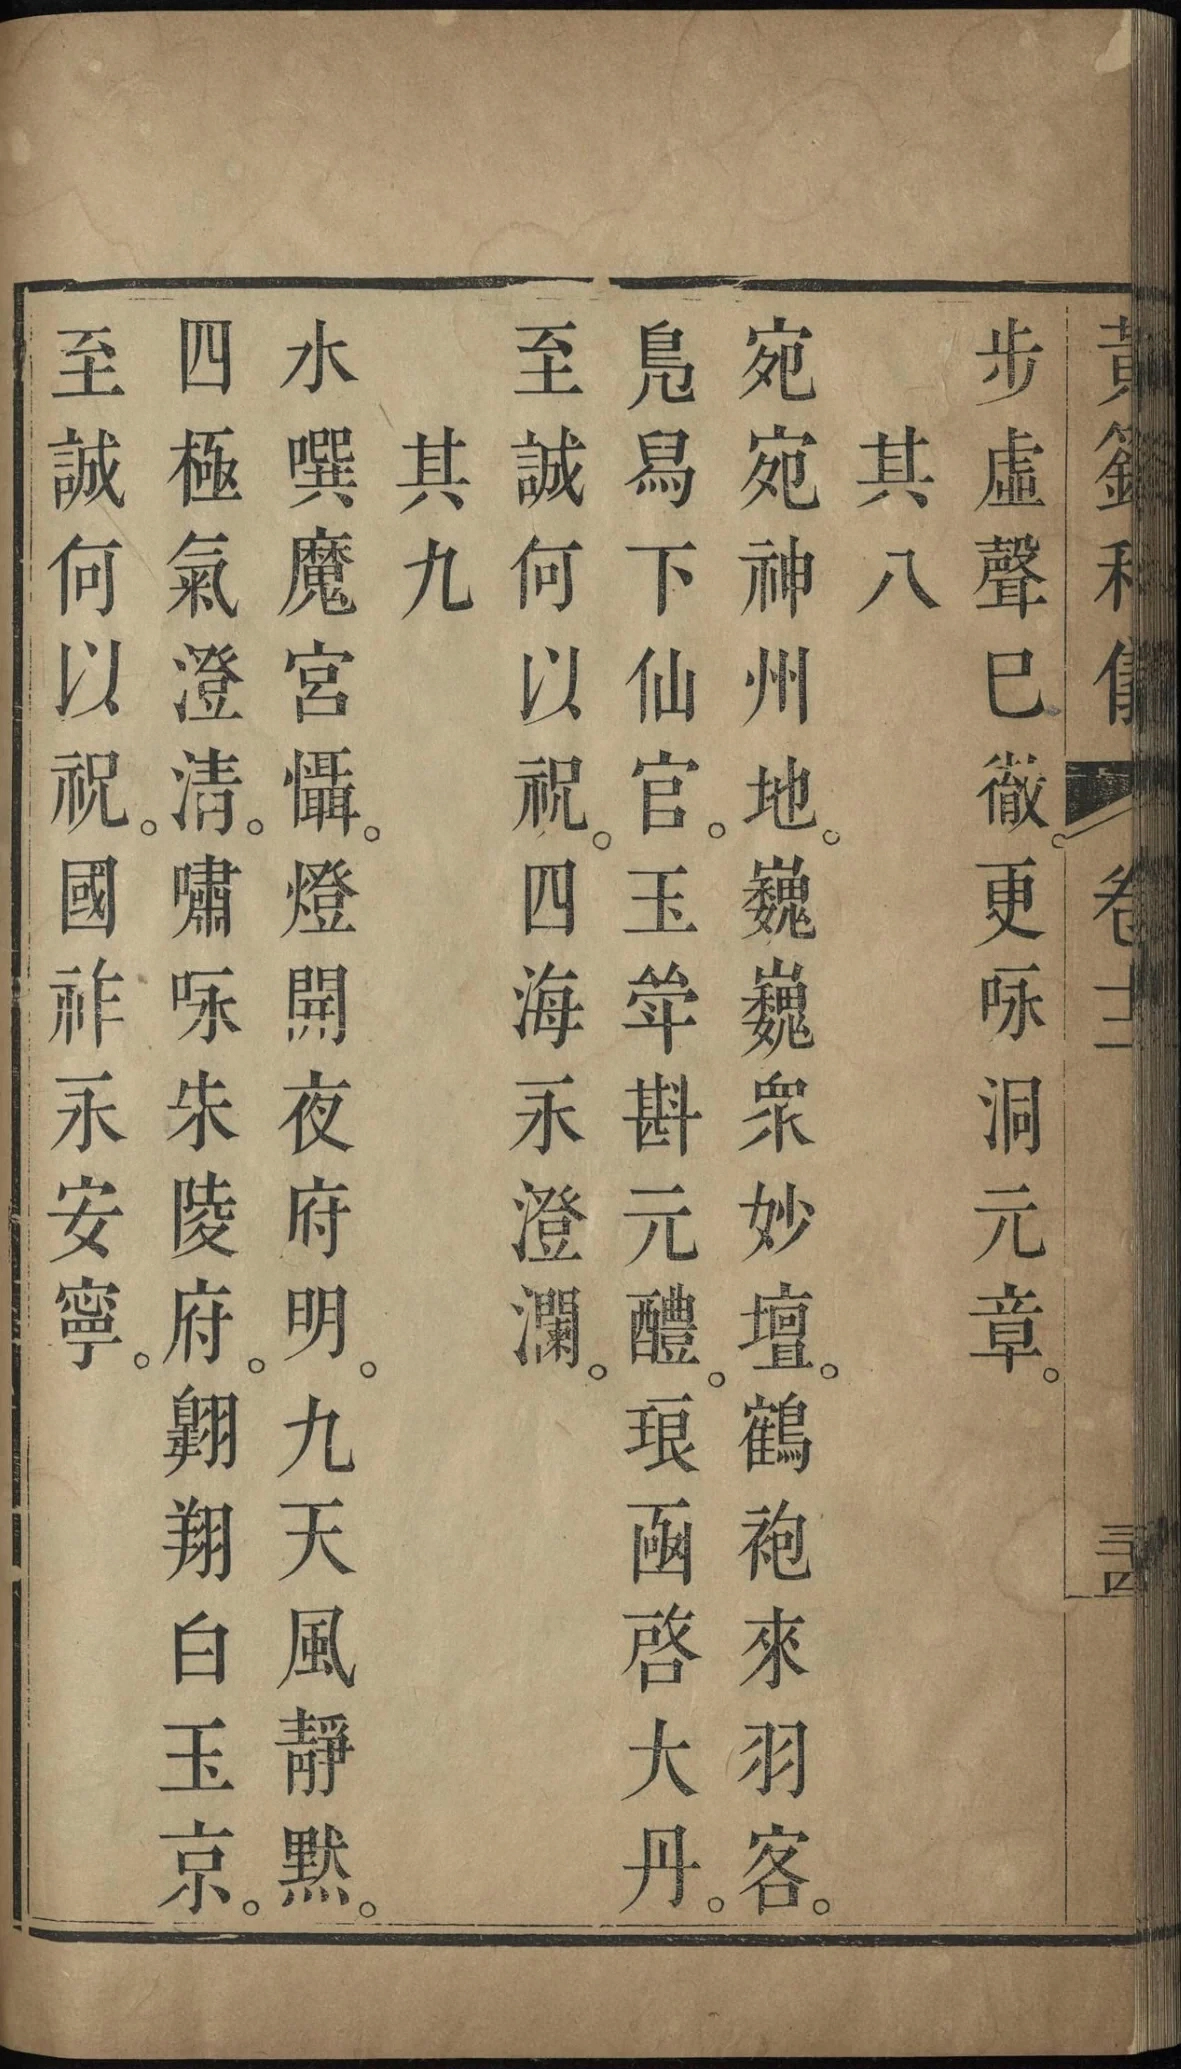 黃籙科儀 卷十二 三十四
步虛聲巳徹。更咏洞元章。
其八
宛宛神州地。巍巍衆妙壇。鶴袍來羽客。
鳬舄下仙官。玉斚斟元醴。琅函啓大丹。
至誠何以祝。四海永澄瀾。
其九
水噀魔宮懾。燈開夜府明。九天風靜默。
四極氣澄清。嘯咏朱陵府。翱翔白玉京。
至誠何以祝。國祚永安寧。